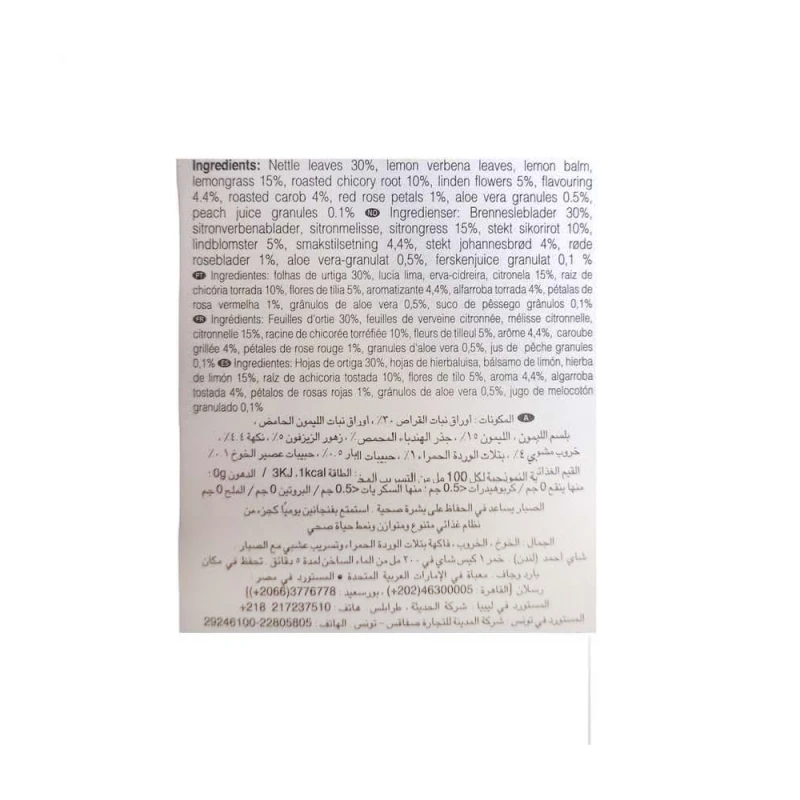 Ingredients: Nettle leaves 30%, lemon verbena leaves, lemon balm,
lemongrass 15%, roasted chicory root 10%, linden flowers 5%, flavouring
4.4%, roasted carob 4%, red rose petals 1%, aloe vera granules 0.5%,
peach juice granules 0.1% NO Ingredienser: Brennesleblader 30%,
sitronverbenablader, sitronmelisse, sitrongress 15%, stekt sikorirot 10%,
lindblomster 5%, smakstilsetning 4,4%, stekt johannesbrød 4%, røde
roseblader 1%, aloe vera-granulat 0,5%, ferskenjuice granulat 0,1 %
PT Ingredientes: folhas de urtiga 30%, lucia lima, erva-cidreira, citronela 15%, raiz de
chicória torrada 10%, flores de tília 5%, aromatizante 4,4%, alfarroba torrada 4%, pétalas de
rosa vermelha 1%, grânulos de aloe vera 0,5%, suco de pêssego grânulos 0,1%
FR Ingrédients: Feuilles d'ortie 30%, feuilles de verveine citronnée, mélisse citronnelle,
citronnelle 15%, racine de chicorée torréfiée 10%, fleurs de tilleul 5%, arôme 4,4%, caroube
grillée 4%, pétales de rose rouge 1%, granules d'aloe vera 0,5%, jus de pêche granules
0,1% ES Ingredientes: Hojas de ortiga 30%, hojas de hierbaluisa, bálsamo de limón, hierba
de limón 15%, raíz de achicoria tostada 10%, flores de tilo 5%, aroma 4,4%, algarroba
tostada 4%, pétalos de rosas rojas 1%, gránulos de aloe vera 0,5%, jugo de melocotón
granulado 0,1%
A المكونات: أوراق نبات القراص ٣٠٪، أوراق نبات الليمون الحامض،
بلسم الليمون، الليمون ١٥٪، جذر الهندباء المحمص٪، زهور الزيزفون ٥٪، نكهة ٤.٤٪،
خروب مشوي ٤٪، بتلات الوردة الحمراء ١٪، حبيبات ٠.٥٪، حبيبات عصير الخوخ ٠.١٪
القيم الغذائية النموذجية لكل 100 مل من التسريب: الطاقة 3KJ ،1kcal / الدهون 0g:
منها يتقع 0 جم / كربوهيدرات <0.5 جم: منها السكريات <0.5 جم / البروتين 0 جم / الملح 0 جم
الصبار يساعد في الحفاظ على بشرة صحية. استمتع بفنجانين يوميًا كجزء من
نظام غذائي متنوع ومتوازن ونمط حياة صحي
الجمال: الخوخ، الخروب، فاكهة بتلات الوردة الحمراء وتسريب عشبي مع الصبار
شاي أحمد (لندن). خمر ١ كيس شاي في ٢٠٠ مل من الماء الساخن لمدة ٥ دقائق. تحفظ في مكان
بارد وجاف. معبأة في الإمارات العربية المتحدة • المستورد في مصر:
رسلان [القاهرة: 46300005(202+)، بورسعيد: 3776778(2066+)]
المستورد في ليبيا: شركة الحديثة، طرابلس. هاتف: 217237510 218+
المستورد في تونس: شركة المدينة للتجارة صفاقس – تونس. الهاتف: 22805805-29246100